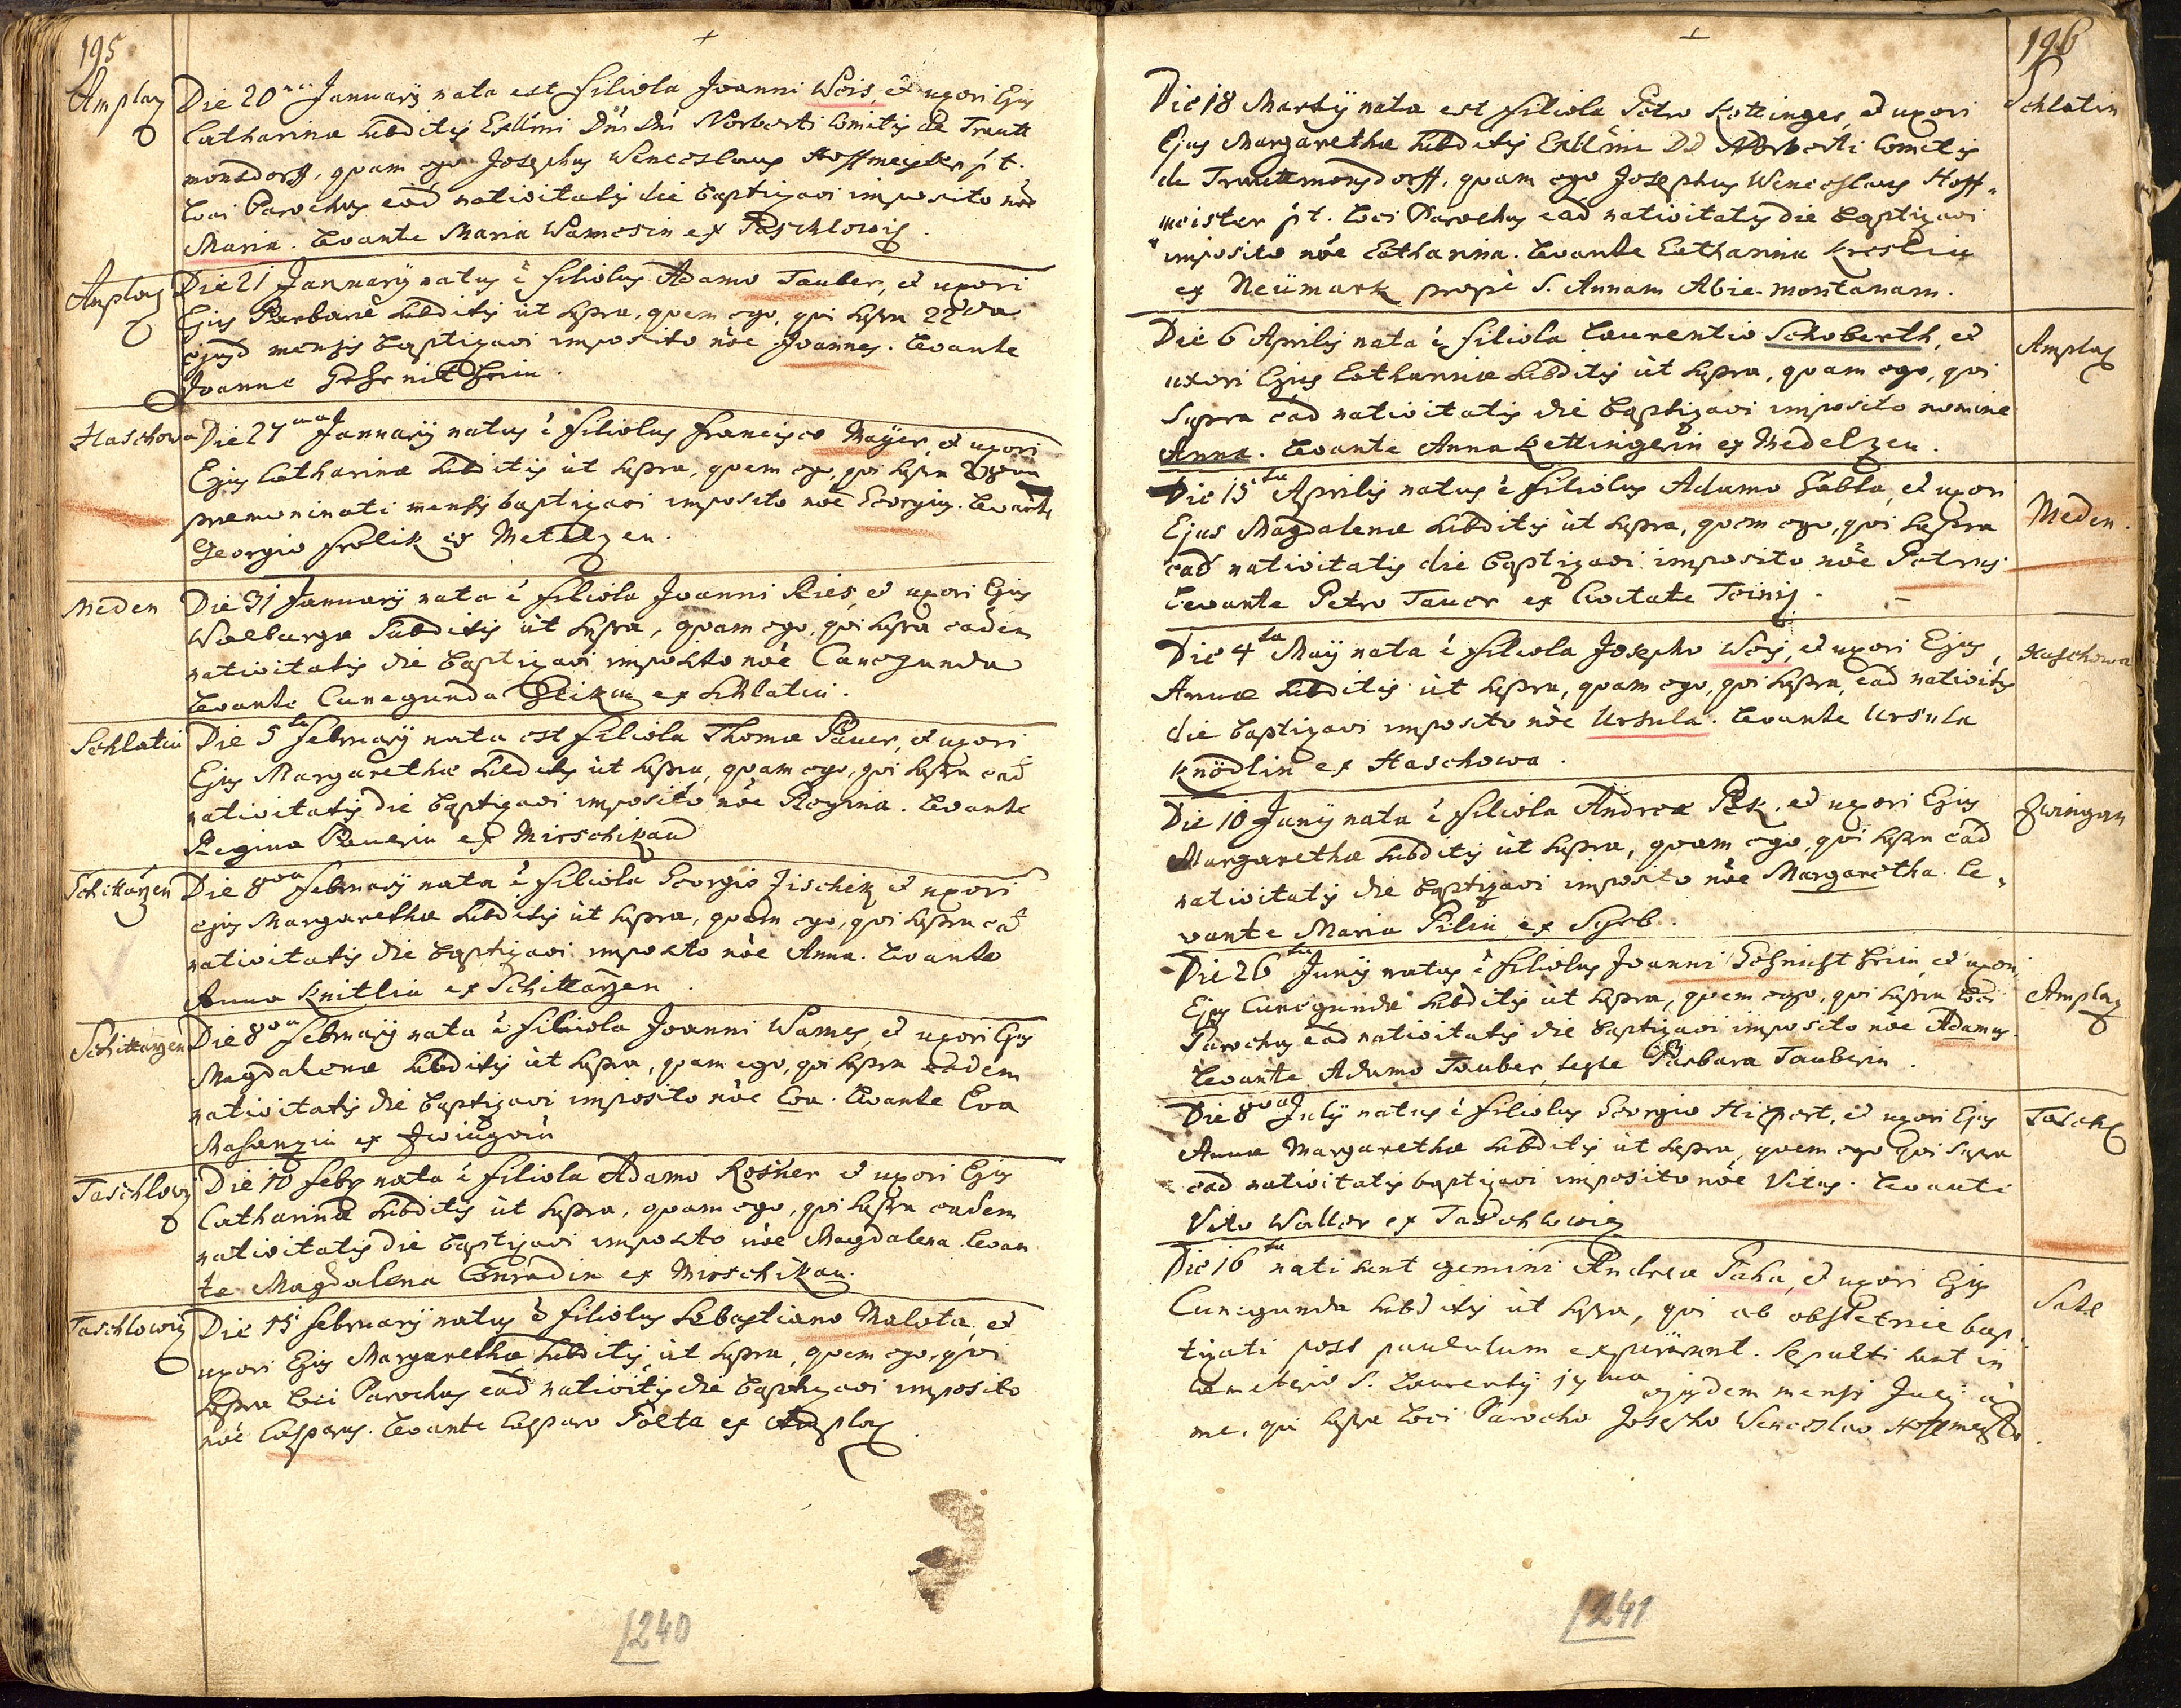 195
Amplaz
Die 20 Januarij nata est filiola Joanni Weis, et uxori Ejus
Catharinæ subditis Exllmi Dni Dni Norberti Comitis de Trautt
monsdorff, quam ego Josephus Wenceslaus Hoffmeister p t.
loci Parochus eâd nativitatis die baptizavi imposito nôe
Maria. levante Maria Wamesin ex Taschlowiz.
Amplaz
Die 21 Januarij natus ê filiolus Adamo Tauber, et uxori
Ejus Barbaræ subditis ut supra, quem ego, qui supra 22da
ejusd mensis baptizavi imposito nôe Joannes. levante
Joanne
Haschowa
Die 27ma Januarij natus ê filiolus Francisco Mayer, et uxori
Ejus Catharinæ subditis ut supra, quem ego, qui supra
præmominati mensis baptizavi imposito nôe Georgius. levante
Georgio Frolik ex Metelzen.
Meden
Die 31 Januarij nata ê filiola Joanni Ries, et uxori Ejus
Walburgæ Subditis ut supra, quam ego, qui supra eadem
nativitatis die baptizavi imposito nôe Cunegunda
levante Cunegunda ex Schlatin.
Schlatin
Die 5ta Februarij nata est filiola Thomæ Pauer, et uxori
Ejus Margarethæ subditis ut supra, quam ego, qui supra eâd
nativitatis die baptizavi imposito nôe Regina. levante
Regina Pauerin ex Mirschikau
Schittarzen
Die 8va Februarij nata ê filiola Georgio Jischek et uxori
ejus Margarethæ subditis ut supra, quam ego, qui supra eâd
nativitatis die baptizavi imposito nôe Anna. levante
Anna Knitlin ex Schittarzen.
Schittarzen
Die 8va Februarij nata ê filiola Joanni Wames, et uxori Ejus
Magdalenæ subditis ut supra, quam ego, qui supra eadem
nativitatis die baptizavi imposito nôe Eva. levante Eva
ex Zwingain
Taschlowiz
Die 10 Febr nata ê filiola Adamo Rosner et uxori Ejus
Catharinæ subditis ut supra, quam ego, qui supra eadem
nativitatis die baptizavi imposito nôe Magdalena. levan
te Magdalena Conradin ex Mirschikau.
Taschlowiz
Die 15 Februarij natus ê filiolus Sebastiano Malota, et
uxori Ejus Margarethæ subditis ut supra, quem ego, qui
supra loci Parochus eâd nativitis die baptizavi imposito
nôe Casparus. levante Casparo Tölta ex Amplaz.
1240
196
Die 18 Martij nata est filiola Petro Kettinger, et uxori
Schlatin
Ejus Margarethæ subditis Exllmi DD Norberti Comitis
de Trauttmonsdorff, quam ego Josephus Wenceslaus Hoff-
meister p t. loci Parochus eâd nativitatis die baptizavi
imposito nôe Catharina. levante Catharina
ex Neümark propè S. Annam Abie-montanam.
Die 6 Aprilis nata ê filiola Laurentio Schoberth, et
Amplaz
uxori Ejus Catharinæ subditis ut supra, quam ego, qui
supra eâd nativitatis die baptizavi imposito nomine
Anna. levante Anna Kettingerin ex Medelzen.
Die 15ta Aprilis natus ê filiolus Adamo Habla, et uxori
Meden.
Ejus Magdalenæ subditis ut supra, quem ego, qui supra
eâd nativitatis die baptizavi imposito nôe Petrus.
levante Petro Tauer ex Civitate Teinitz.
Die 4ta Maij nata ê filiola Josepho Weis, et uxori Ejus
Haschowa
Annæ subditis ut supra, quam ego, qui supra, eâd nativitis
die baptizavi imposito nôe Ursula. levante Ursula
Knödlin ex Haschowa.
Die 10 Junij nata ê filiola Andreæ Pek, et uxori Ejus
Zwingau
Margarethæ subditis ut supra, quam ego, qui supra eâd
nativitatis die baptizavi imposito nôe Margaretha. le-
vante Maria Pilin ex Syrb.
Die 26ta Junij natus ê filiolus Joanni et uxori
Amplaz
Ejus Cunegundæ subditis ut supra, quem ego, qui supra loci
Parochus eâd nativitatis die baptizavi imposito nôe Adamus.
levante Adamo Tauber, teste Barbara Tauberin.
Die 8va Julij natus ê filiolus Georgio Hipert, et uxori Ejus
Taschl
Annæ Margarethæ subditis ut supra, quem ego qui supra
eâd nativitatis baptizavi imposito nôe Vitus. levante
Vito Waller ex Taschlowiz
Die 16ta nati sunt gemini Andreæ Paha, et uxori Ejus
Cunegundæ subditis ut supra, qui ab obstetrice bap-
tizati post paululum expirarunt. Sepulti sunt in
Cemeterio S. Laurentij 17ma ejusdem mensis Julij à
me, qui supra loci Parocho Josepho Wenceslao Hoffmeister.
1241